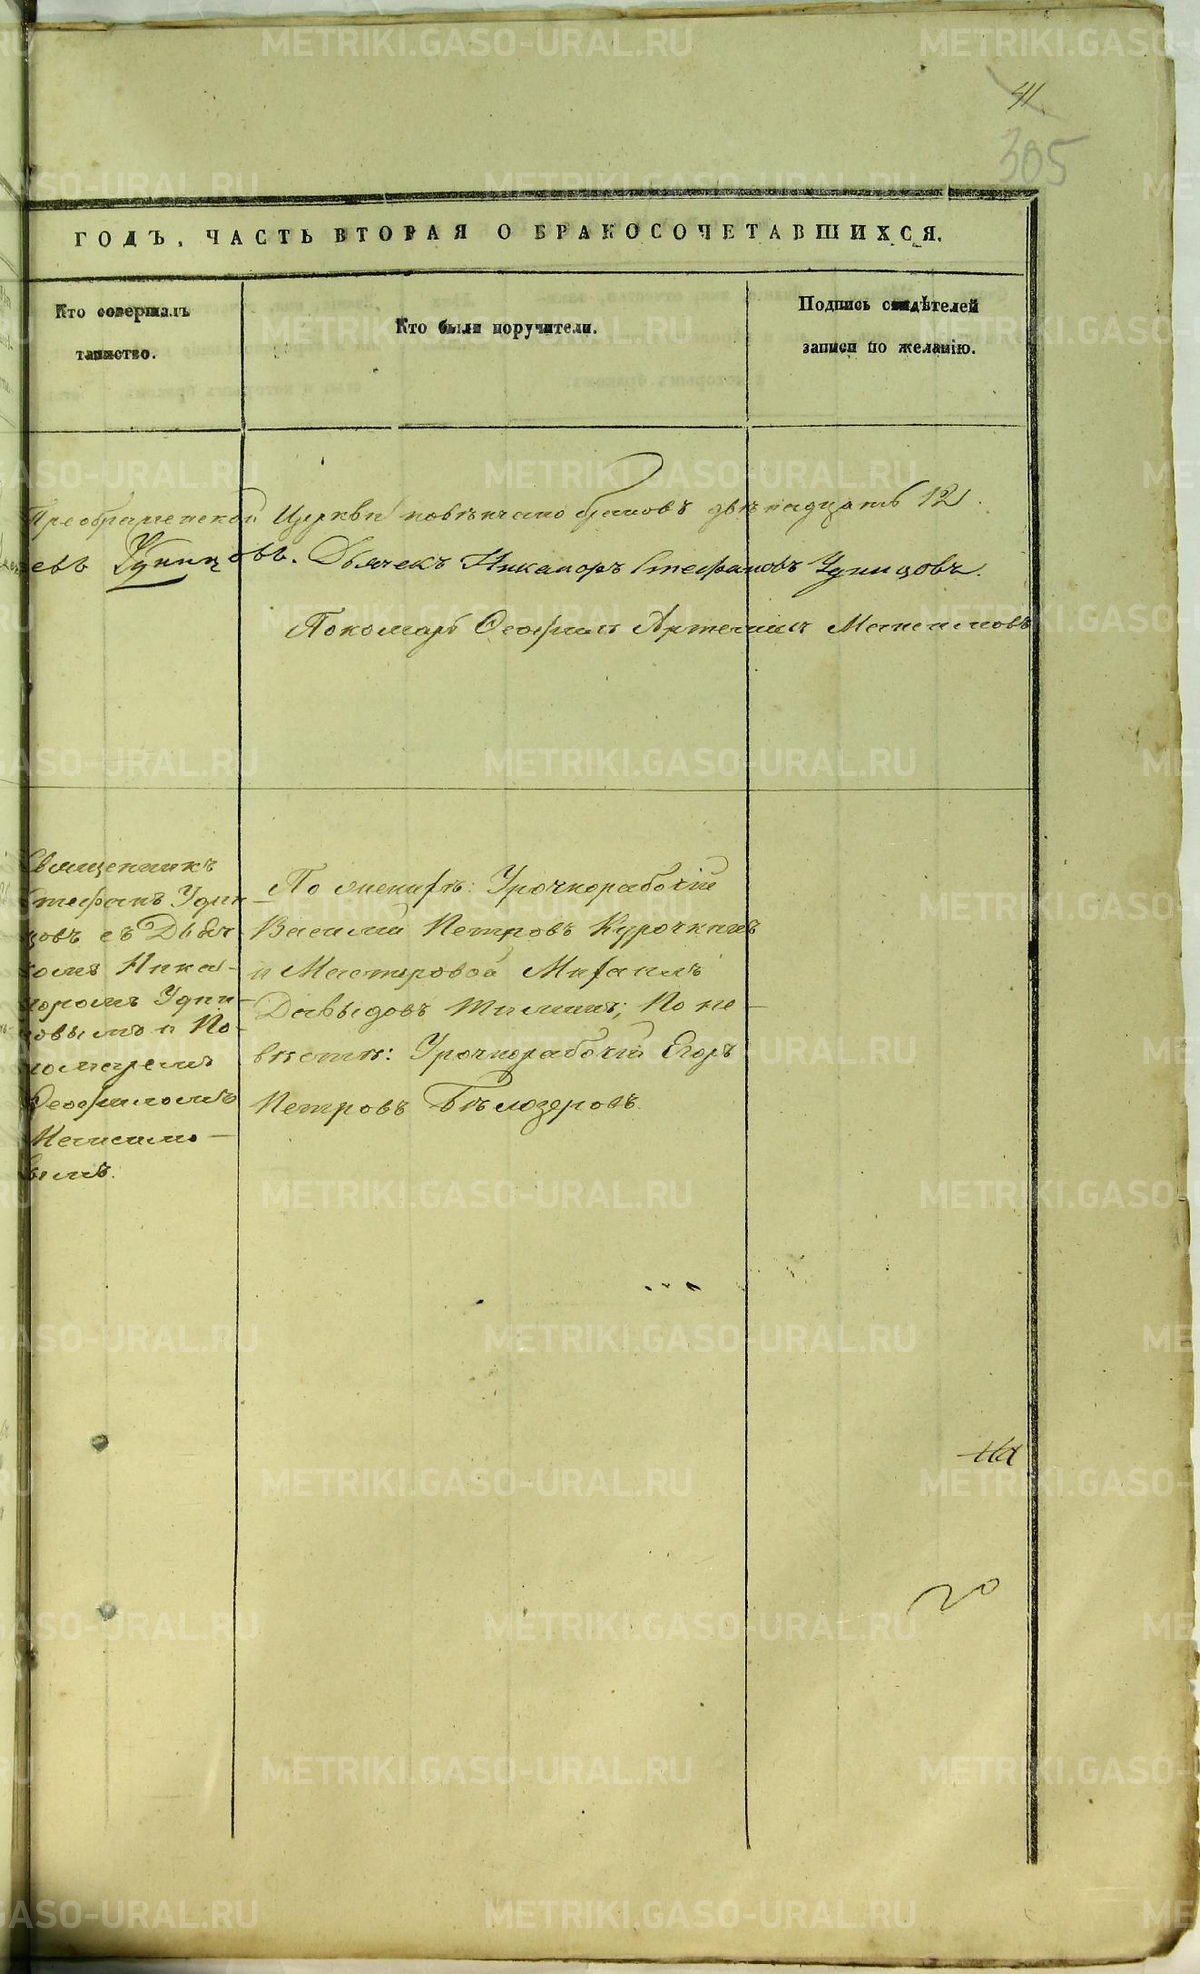 41.
305
ГОДЪ, ЧАСТЬ ВТОРАЯ О БРАКОСОЧЕТАВШИХСЯ.
Кто совершалъ
таинство.
Кто были поручители.
Подпись свидѣтелей
записи по желанію.
Преображенской Церкви повѣнчано браковъ двѣнадцать 12.
евъ Удинцовъ. Дьячекъ Никаноръ Стефановъ Удинцовъ.
Пономарь Ѳеофилъ Артемьевъ
Священникъ
Стефанъ Удин-
цовъ съ Дьяч
комъ Ника-
норомъ Удин-
цовымъ и По-
номаремъ
Ѳеофиломъ
вымъ.
По женихѣ: Урочнорабочій
Василій Петровъ Курочкинъ
и Мастеровой Михаилъ
Давыдовъ; По не-
вѣстѣ: Урочнорабочій Егоръ
Петровъ Бѣлозеровъ.
На
METRIKI.GASO-URAL.RU